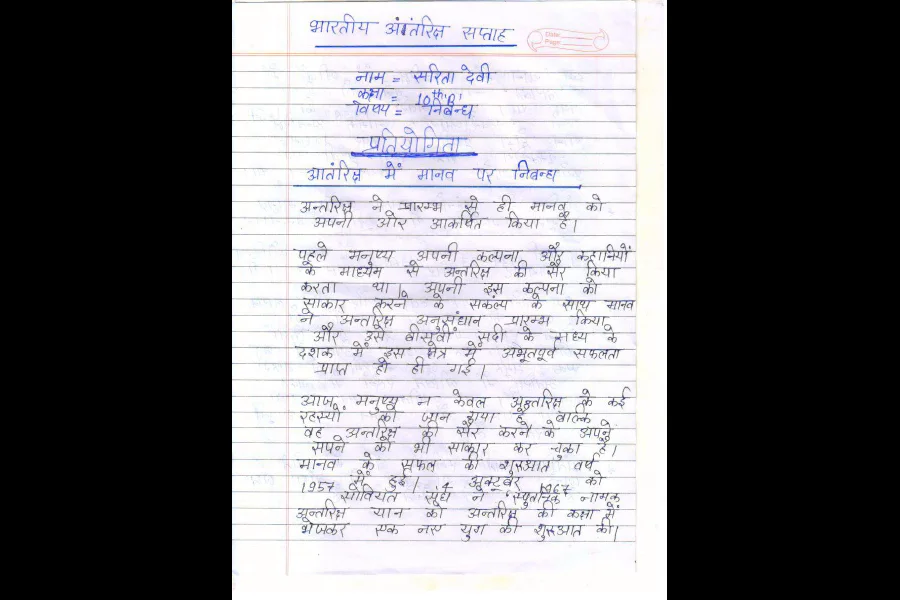 भारतीय अंातंरिक्ष सप्ताह
Date:
Page:
नाम = सरिता देवी
कक्षा = 10th 'B'
विषय = निबन्ध
प्रतियोगिता
आतंरिक्ष में मानव पर निबन्ध
अन्तरिक्ष ने प्रारम्भ से ही मानव को
अपनी ओर आकर्षित किया है।
पहले मनुष्य अपनी कल्पना और कहानियों
के माध्यम से अन्तरिक्ष की सैर किया
करता था। अपनी इस कल्पना को
साकार करने के संकल्प के साथ मानव
ने अन्तरिक्ष अनुसंधान प्रारम्भ किया
और उसे बीसवीं सदी के मध्य के
दशक में इस क्षेत्र में अभूतपूर्व सफलता
प्राप्त हो ही गई।
आज मनुष्य न केवल अन्तरिक्ष के कई
रहस्यों को जान गया है बल्कि
वह अन्तरिक्ष की सैर करने के अपने
सपने को भी साकार कर चुका है।
मानव के सफल की शुरुआत वर्ष
1957 में हुई। 4 अक्टूबर 1967 को
सोवियत संघ ने 'स्पुतनिक नामक
अन्तरिक्ष यान को अन्तरिक्ष की कक्षा में
भेजकर एक नए युग की शुरुआत की।